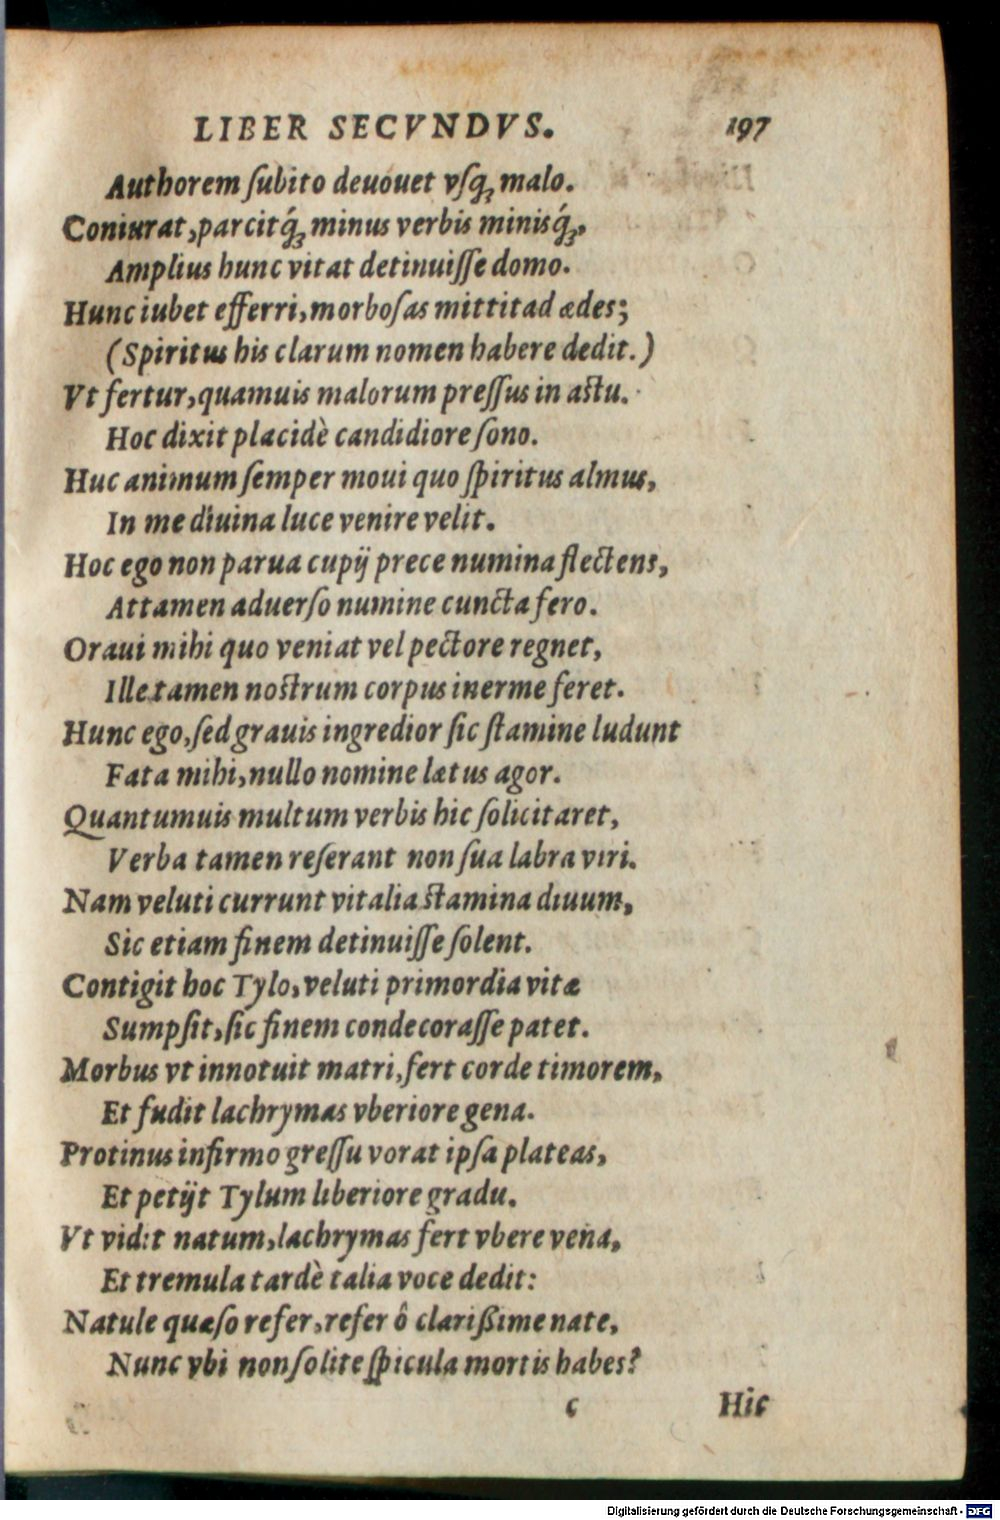 LIBER SECVNDVS. 197
Authorem ſubito deuouet vſq; malo.
Coniurat, parcitq́; minus verbis minisq́;.
Amplius hunc vitat detinuiſſe domo.
Hunc iubet efferri, morboſas mittit ad ædes;
(Spiritus his clarum nomen habere dedit.)
Vt fertur, quamuis malorum preſſus in aſtu.
Hoc dixit placidè candidiore ſono.
Huc animum ſemper moui quo ſpiritus almus,
In me diuina luce venire velit.
Hoc ego non parua cupij prece numina flectens,
Attamen aduerſo numine cuncta fero.
Oraui mihi quo veniat vel pectore regnet,
Ille tamen noſtrum corpus inerme feret.
Hunc ego, ſed grauis ingredior ſic ſtamine ludunt
Fata mihi, nullo nomine lætus agor.
Quantumuis multum verbis hic ſolicitaret,
Verba tamen reſerant non ſua labra viri.
Nam veluti currunt vitalia ſtamina diuum,
Sic etiam finem detinuiſſe ſolent.
Contigit hoc Tylo, veluti primordia vitæ
Sumpſit, ſic finem condecoraſſe patet.
Morbus vt innotuit matri, fert corde timorem,
Et fudit lachrymas vberiore gena.
Protinus infirmo greſſu vorat ipſa plateas,
Et petijt Tylum liberiore gradu.
Vt vidit natum, lachrymas fert vbere vena,
Et tremula tardè talia voce dedit:
Natule quæſo refer, refer ô clarißime nate,
Nunc vbi non ſolite ſpicula mortis habes?
c Hic
Digitalisierung gefördert durch die Deutsche Forschungsgemeinschaft - DFG